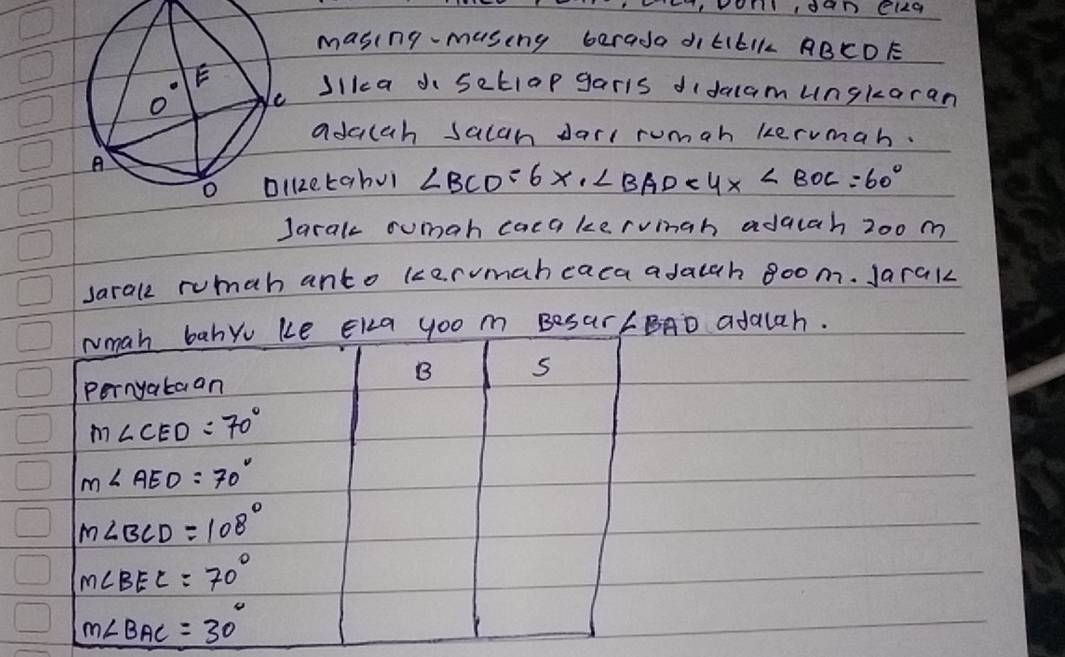 dan eka
masing-masing berada dititik ABCDE
O E C
Jika di setiap garis didalam lingkaran
adalah jalan dari rumah kerumah.
A
D
Diketahui ∠BCD = 6x, ∠BAD = 4x ∠BOC = 60°
Jarak rumah caca kerumah adalah 200 m
Jarak rumah anto kerumah caca adalah 800 m. Jarak
rumah bahyu ke Eka 400 m Besar ∠BAD adalah.
Pernyataan B S
m∠CED = 70°
m∠AED = 70°
m∠BCD = 108°
m∠BEC = 70°
m∠BAC = 30°